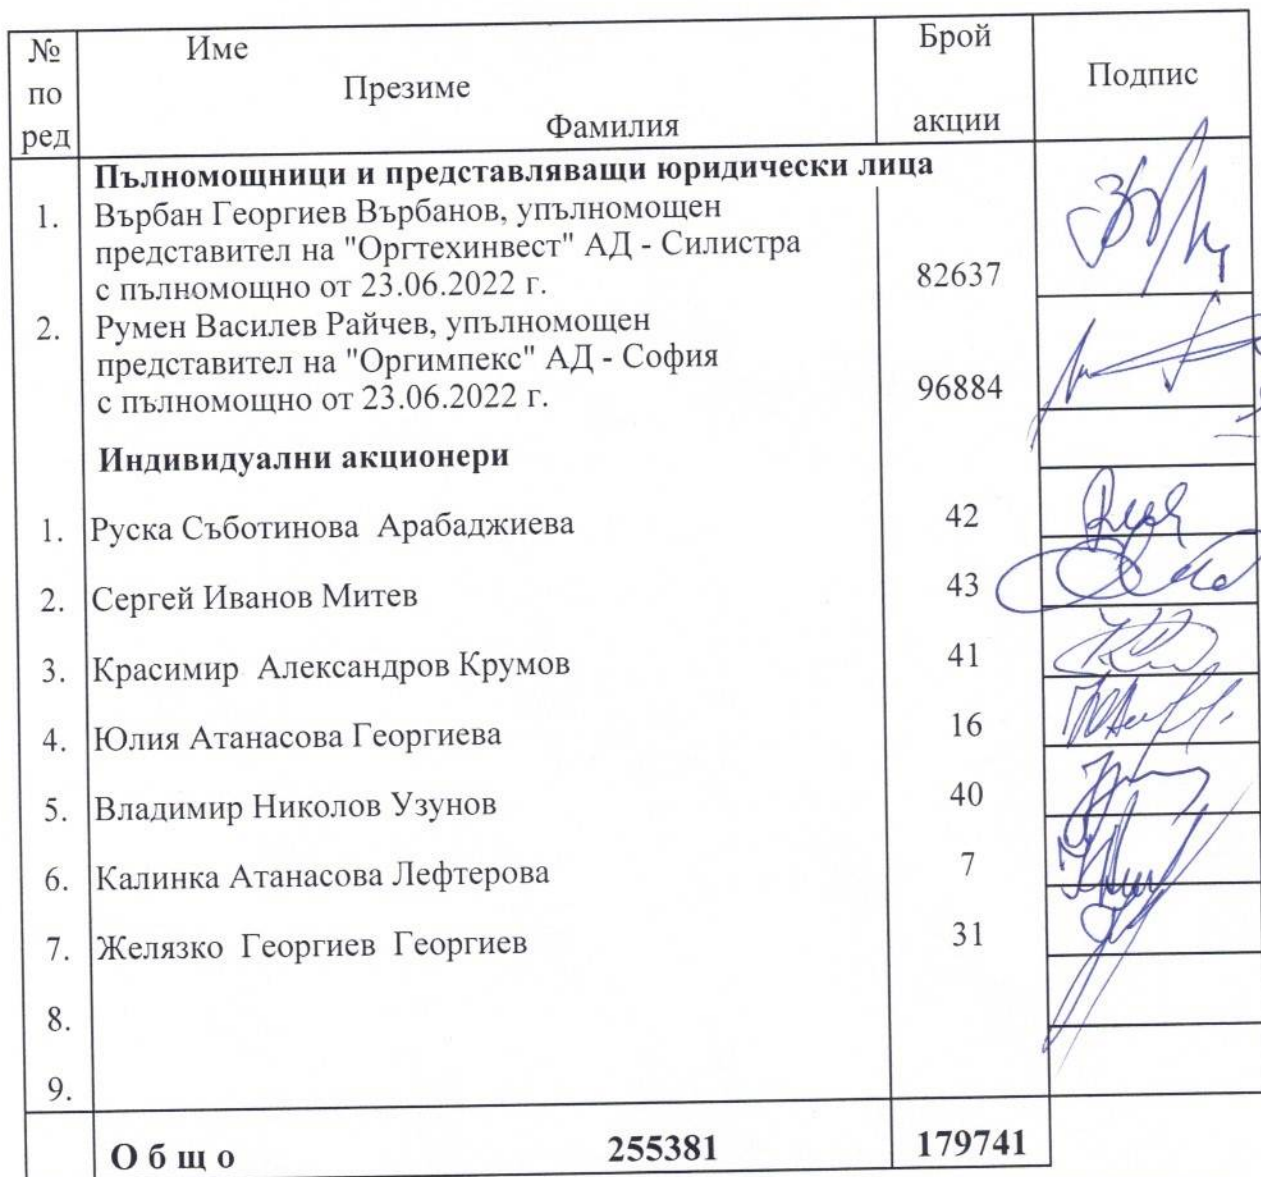 № Име Брой
по Презиме Подпис
ред Фамилия акции
Пълномощници и представляващи юридически лица
1. Върбан Георгиев Върбанов, упълномощен
представител на "Оргтехинвест" АД - Силистра
с пълномощно от 23.06.2022 г. 82637
2. Румен Василев Райчев, упълномощен
представител на "Оргимпекс" АД - София
с пълномощно от 23.06.2022 г. 96884
Индивидуални акционери
1. Руска Съботинова Арабаджиева 42
2. Сергей Иванов Митев 43
3. Красимир Александров Крумов 41
4. Юлия Атанасова Георгиева 16
5. Владимир Николов Узунов 40
6. Калинка Атанасова Лефтерова 7
7. Желязко Георгиев Георгиев 31
8.
9.
О б щ о 255381 179741